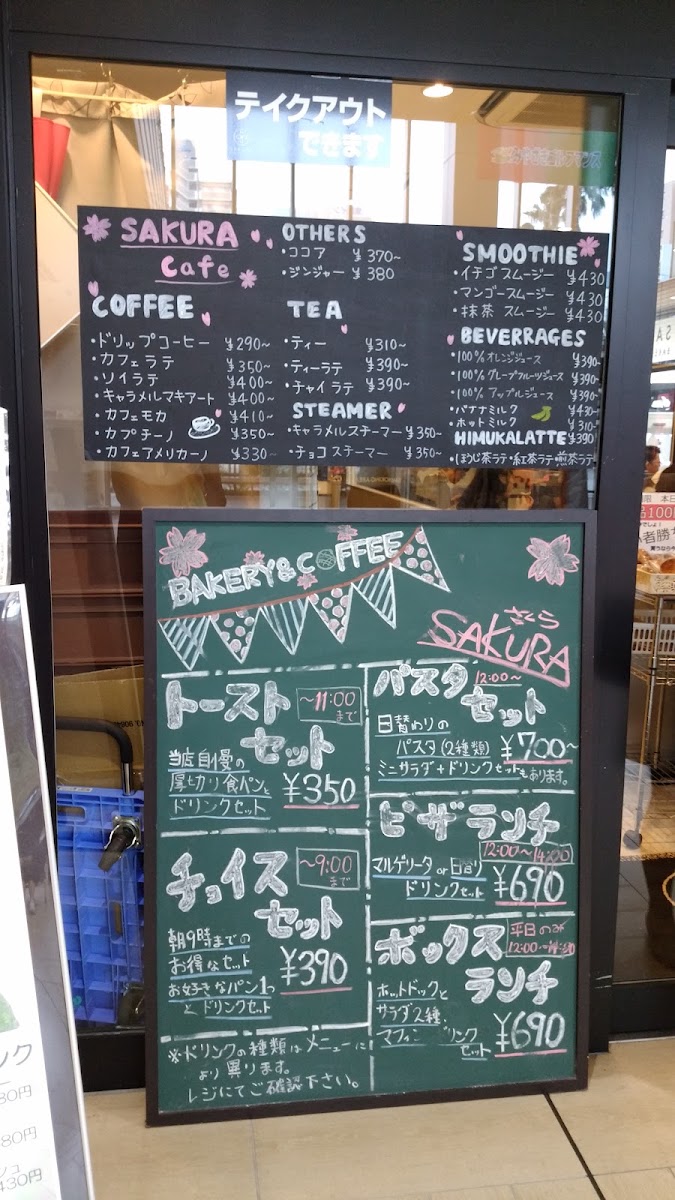 テイクアウト
できます
SAKURA
Cafe
COFFEE
・ドリップコーヒー ¥290~
・カフェラテ ¥350~
・ソイラテ ¥400~
・キャラメルマキアート ¥400~
・カフェモカ ¥410~
・カプチーノ ¥350~
・カフェアメリカーノ ¥330~
OTHERS
・ココア ¥370~
・ジンジャー ¥380
TEA
・ティー ¥310~
・ティーラテ ¥390~
・チャイラテ ¥390~
STEAMER
・キャラメルスチーマー ¥350~
・チョコスチーマー ¥350~
SMOOTHIE
・イチゴスムージー ¥430
・マンゴースムージー ¥430
・抹茶 スムージー ¥430
BEVERRAGES
・100%オレンジジュース ¥390~
・100%グレープフルーツジュース ¥390~
・100%アップルジュース ¥390~
・バナナミルク ¥430~
・ホットミルク ¥310~
HIMUKALATTE ¥390
・ほうじ茶ラテ・紅茶ラテ・煎茶ラテ
BAKERY&COFFEE
さくら
SAKURA
トースト
~11:00
まで
セット
当店自慢の
厚切り食パンと
ドリンクセット
¥350
チョイス
~9:00
まで
セット
朝9時までの
お得なセット
お好きなパン1つ
とドリンクセット
¥390
※ドリンクの種類はメニューに
より異ります。
レジにてご確認下さい。
パスタ
12:00~
セット
日替わりの
パスタ(2種類)
¥700~
ミニサラダ+ドリンクセットもあります。
ピザランチ
12:00~14:00
マルゲリータor日替り
ドリンクセット
¥690
ボックス
平日のみ
12:00~
ランチ
ホットドックと
サラダ2種
マフィン
リンク
セット
¥690
ック
80円
480円
430円